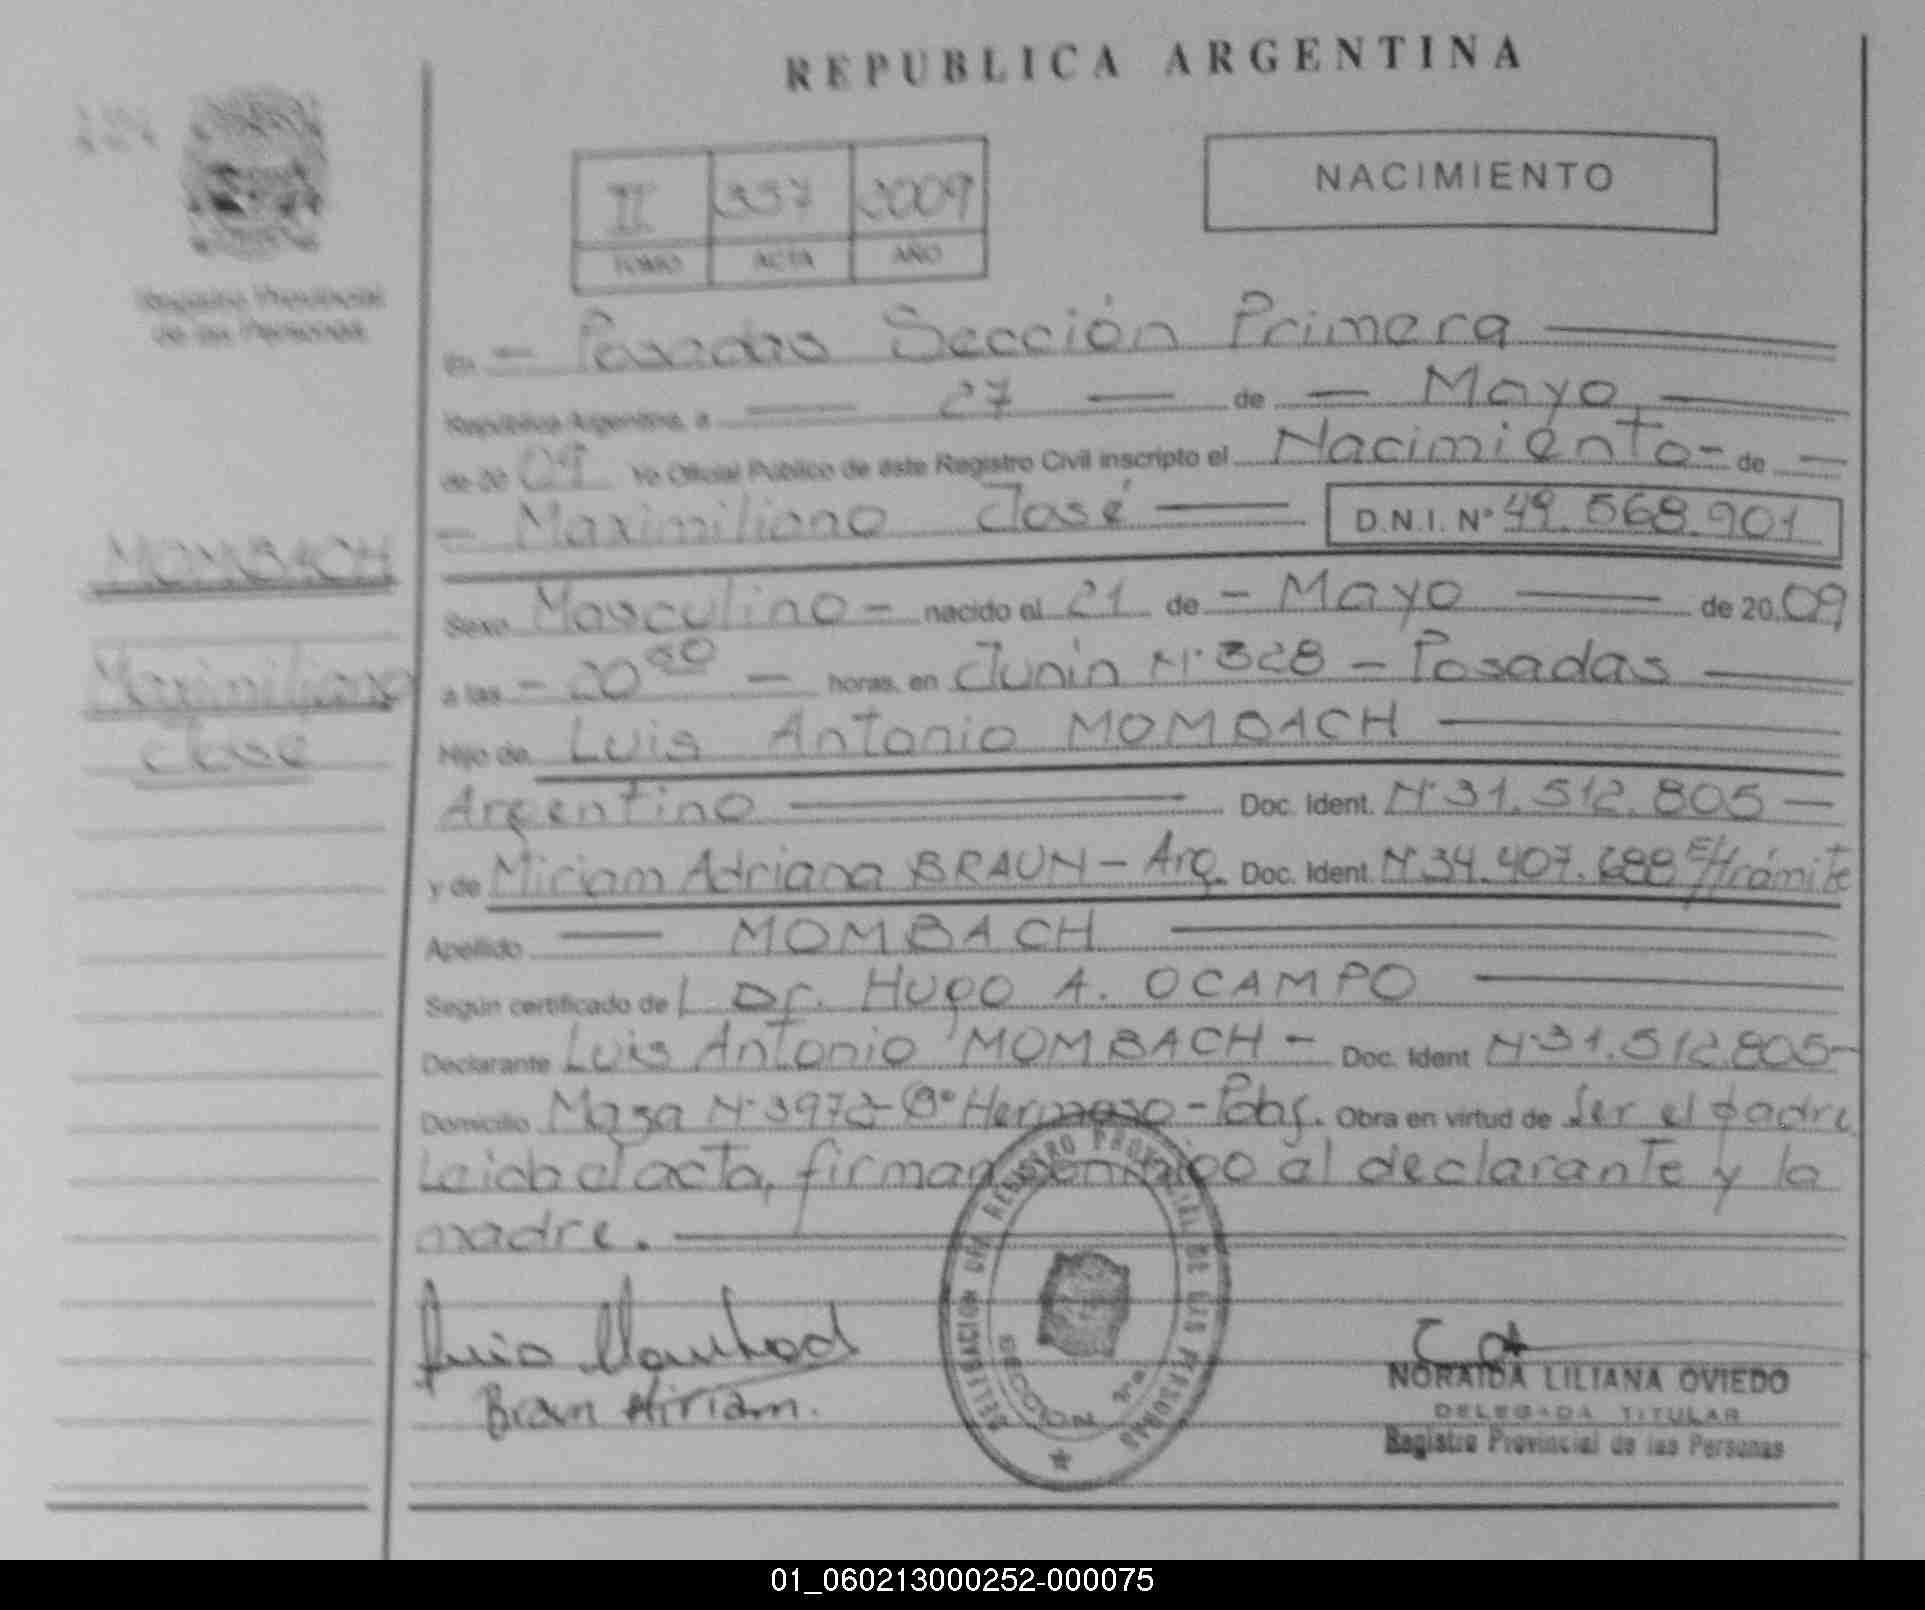 REPUBLICA ARGENTINA
NACIMIENTO
II 357 2009
TOMO ACTA AÑO
Registro Provincial
de las Personas
En - Posadas Sección Primera
República Argentina, a 27 de - Mayo
de 20 09 Yo Oficial Público de este Registro Civil inscripto el Nacimiento - de -
- Maximiliano José D.N.I. Nº 49.568.901
MOMBACH
Sexo Masculino - nacido el 21 de - Mayo de 20 09
Maximiliano
José
a las - 20 - horas, en Junín Nº 328 - Posadas
Hijo de Luis Antonio MOMBACH
Argentino Doc. Ident. Nº 31.512.805 -
y de Miriam Adriana BRAUN - Arg. Doc. Ident. Nº 34.407.688 E/trámite
Apellido MOMBACH
Según certificado de Dr. Hugo A. OCAMPO
Declarante Luis Antonio MOMBACH - Doc. Ident Nº 31.512.805 -
Domicilio Maza Nº 3972 - Bº Hermoso - Pdas. Obra en virtud de Ser el padre
Leída el acta, firman conmigo el declarante y la
madre.
DELEGACION REGISTRO PROVINCIAL DE LAS PERSONAS
SECCION 1ra.
Luis Mombach
Braun Miriam.
NORAIDA LILIANA OVIEDO
DELEGADA TITULAR
Registro Provincial de las Personas
01_060213000252-000075